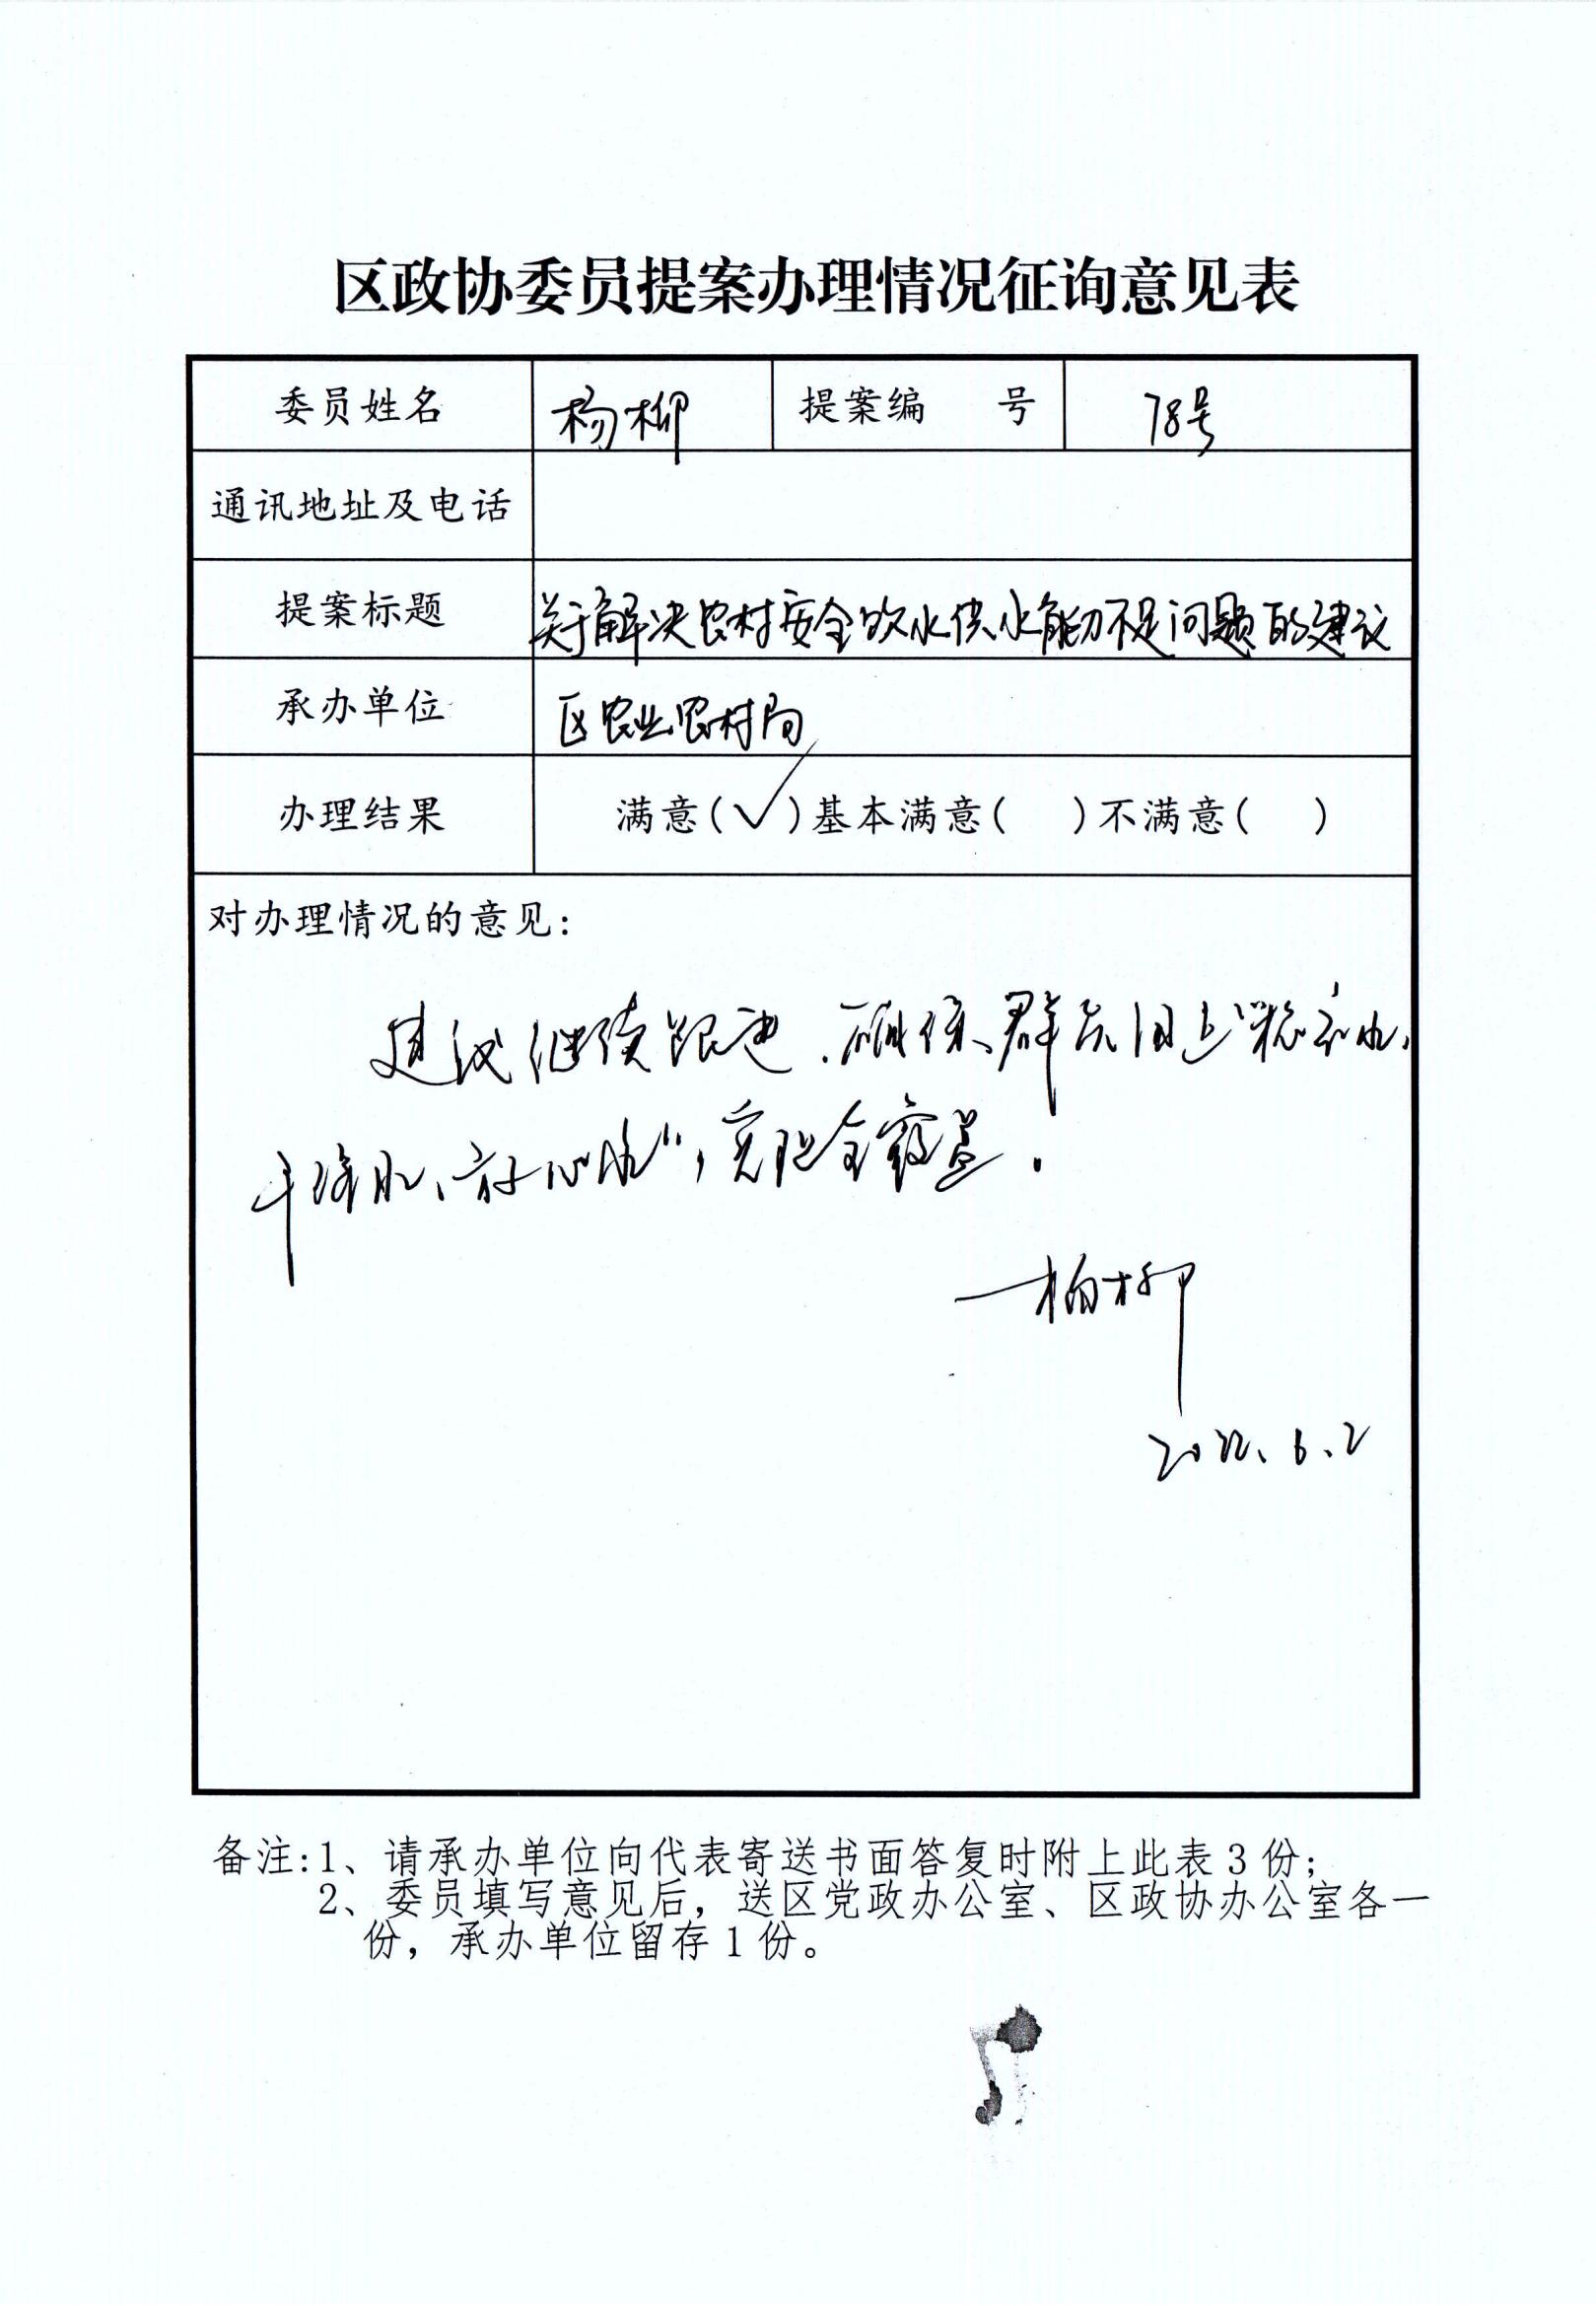 区政协委员提案办理情况征询意见表
委员姓名 杨柳 提案编 号 78号
通讯地址及电话
提案标题 关于解决农村安全饮水供水能力不足问题的建议
承办单位 区农业农村局
办理结果 满意(✓)基本满意( )不满意( )
对办理情况的意见:
建议继续跟进,确保群众用上"稳定水、
干净水、放心水",实现全覆盖。
柳
2022.6.2
备注:1、请承办单位向代表寄送书面答复时附上此表3份;
2、委员填写意见后,送区党政办公室、区政协办公室各一
份,承办单位留存1份。